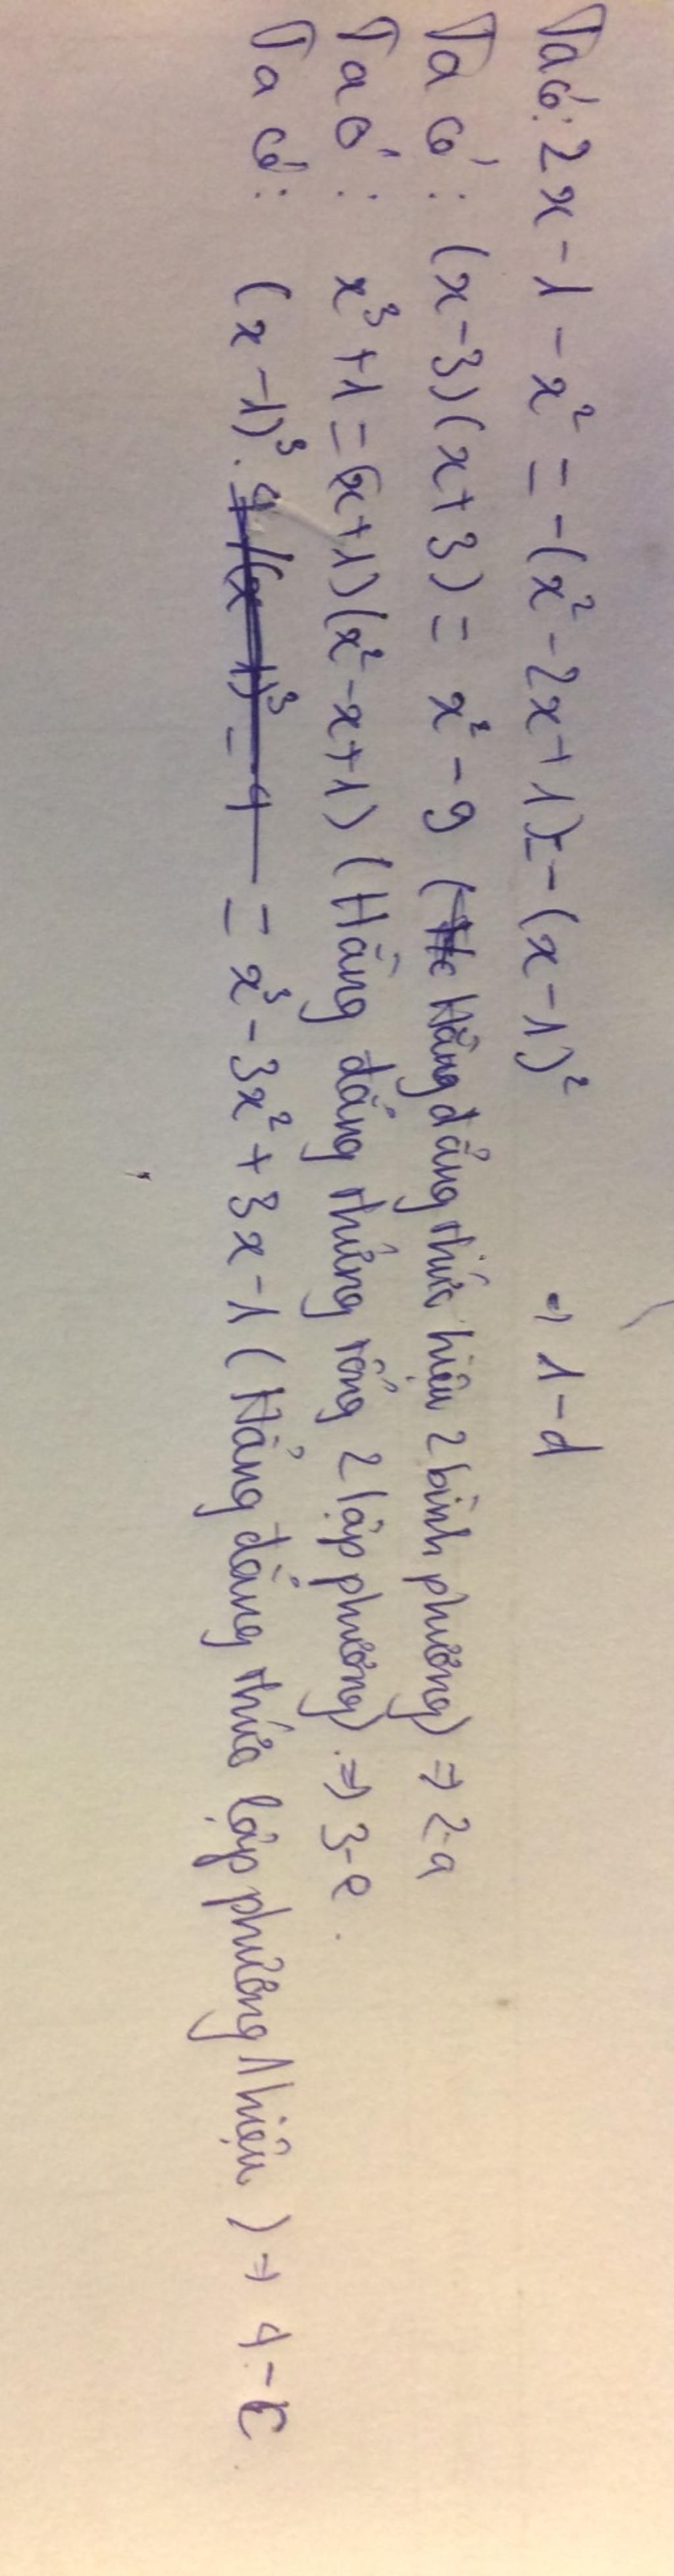 Ta có: 2x - 1 - x² = -(x² - 2x + 1) = -(x - 1)² ⇒ 1 - d
Ta có: (x - 3)(x + 3) = x² - 9 (Hằng đẳng thức hiệu 2 bình phương) ⇒ 2-a
Ta có: x³ + 1 = (x + 1)(x² - x + 1) (Hằng đẳng thưng tổng 2 lập phương) ⇒ 3-e.
Ta có: (x - 1)³ = x³ - 3x² + 3x - 1 (Hằng đẳng thức lập phương 1 hiệu) ⇒ 4 - c